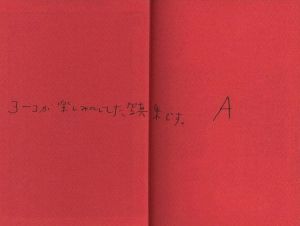 ヨーコが楽しみにしてた写真集です。 A